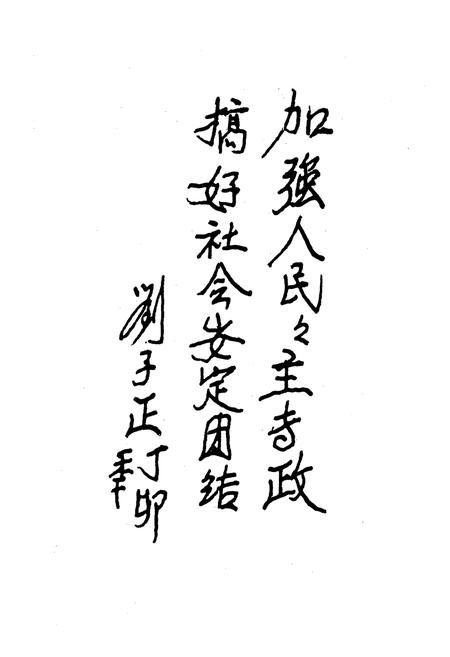 加強人民々主专政
搞好社会安定团结
劉子正
丁卯